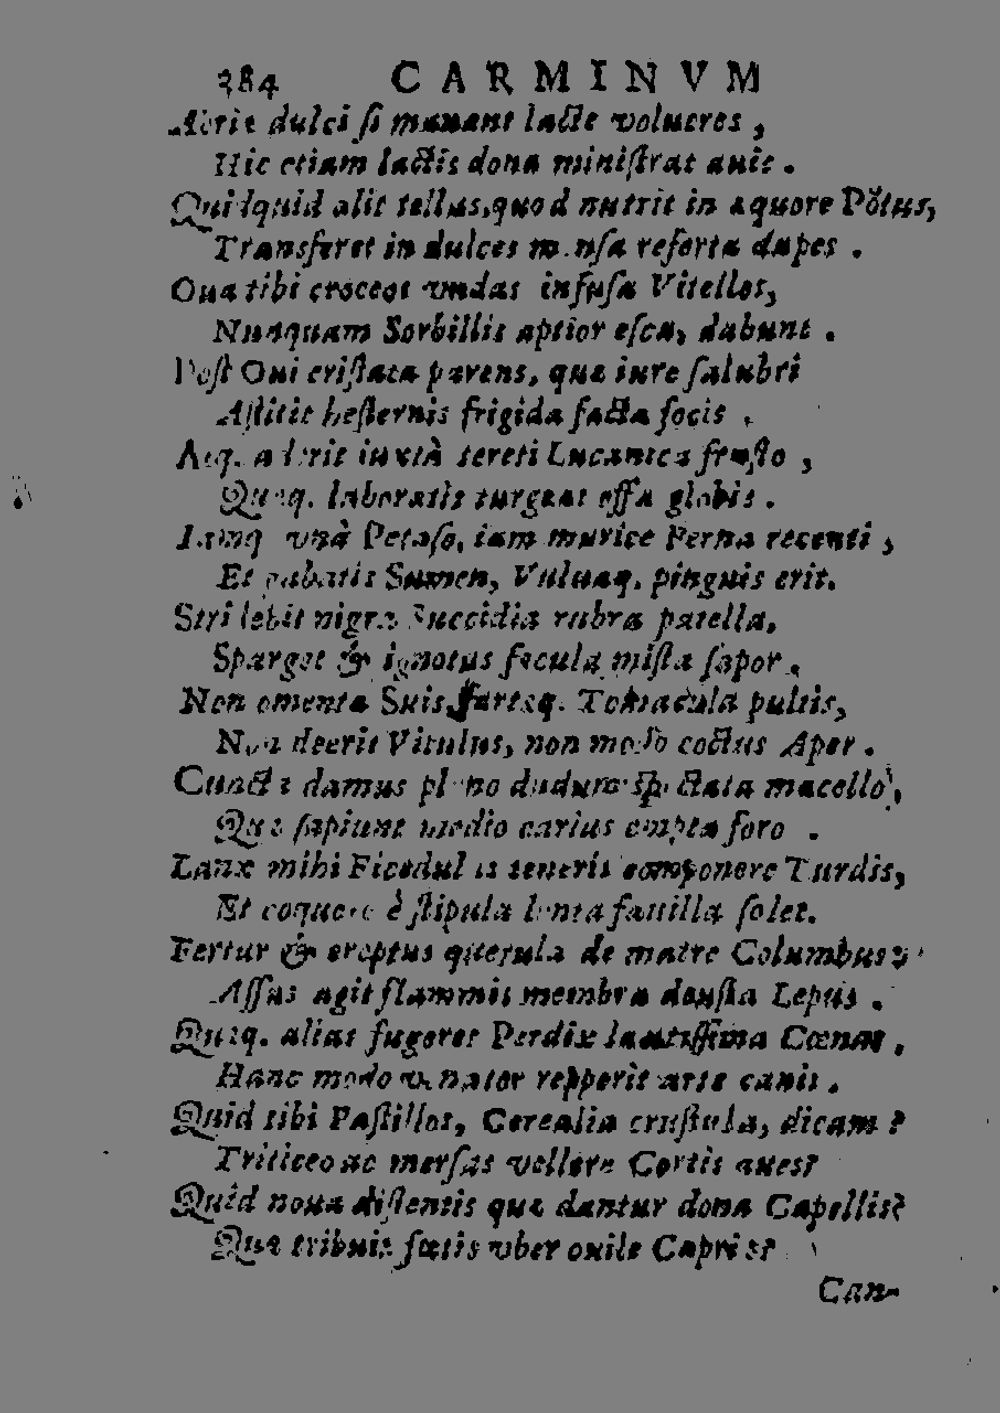 384 CARMINVM
Aërie dulci ſi manant lacte volucres ,
Hic etiam lactis dona miniſtrat auis .
Quidquid alit tellus, quod nutrit in æquore Põtus,
Transferet in dulces menſa referta dapes .
Oua tibi croceos vndas infuſa Vitellos,
Nunquam Sorbillis aptior eſca, dabunt .
Poſt Oui criſtata parens, quæ iure ſalubri
Aſtitit heſternis frigida facta focis .
Atq. aderit iuxtà tereti Lucanica fruſto ,
Quæq. laboratis turgeat offa globis .
Iamq vnà Petaſo, iam murice Perna recenti ,
Et gabatis Sumen, Vuluaq. pinguis erit.
Stridebit nigra Succidia rubra patella,
Sparget & ignotus fæcula miſta ſapor .
Non omenta Suis, fartaq. Tomacula pultis,
Non deerit Vitulus, non modo coctus Aper .
Cuncta damus pleno dudum spectata macello ,
Quæ ſapiunt medio carius empta foro .
Lanx mihi Ficedulas teneris componere Turdis,
Et coquere è ſtipula lenta fauilla ſolet.
Fertur & ereptus querula de matre Columbus
Aſſus agit flammis membra denſta Lepus .
Quæq. alias fugeret Perdix lautiſſima Cœnas ,
Hanc modo venator repperit arte canis .
Quid tibi Paſtillos, Cerealia cruſtula, dicam ?
Triticeo ac merſas vellere Cortis aues?
Quid noua diſtentis quæ dantur dona Capellis?
Quæ tribuis fœtis vber ouile Capris?
Can-